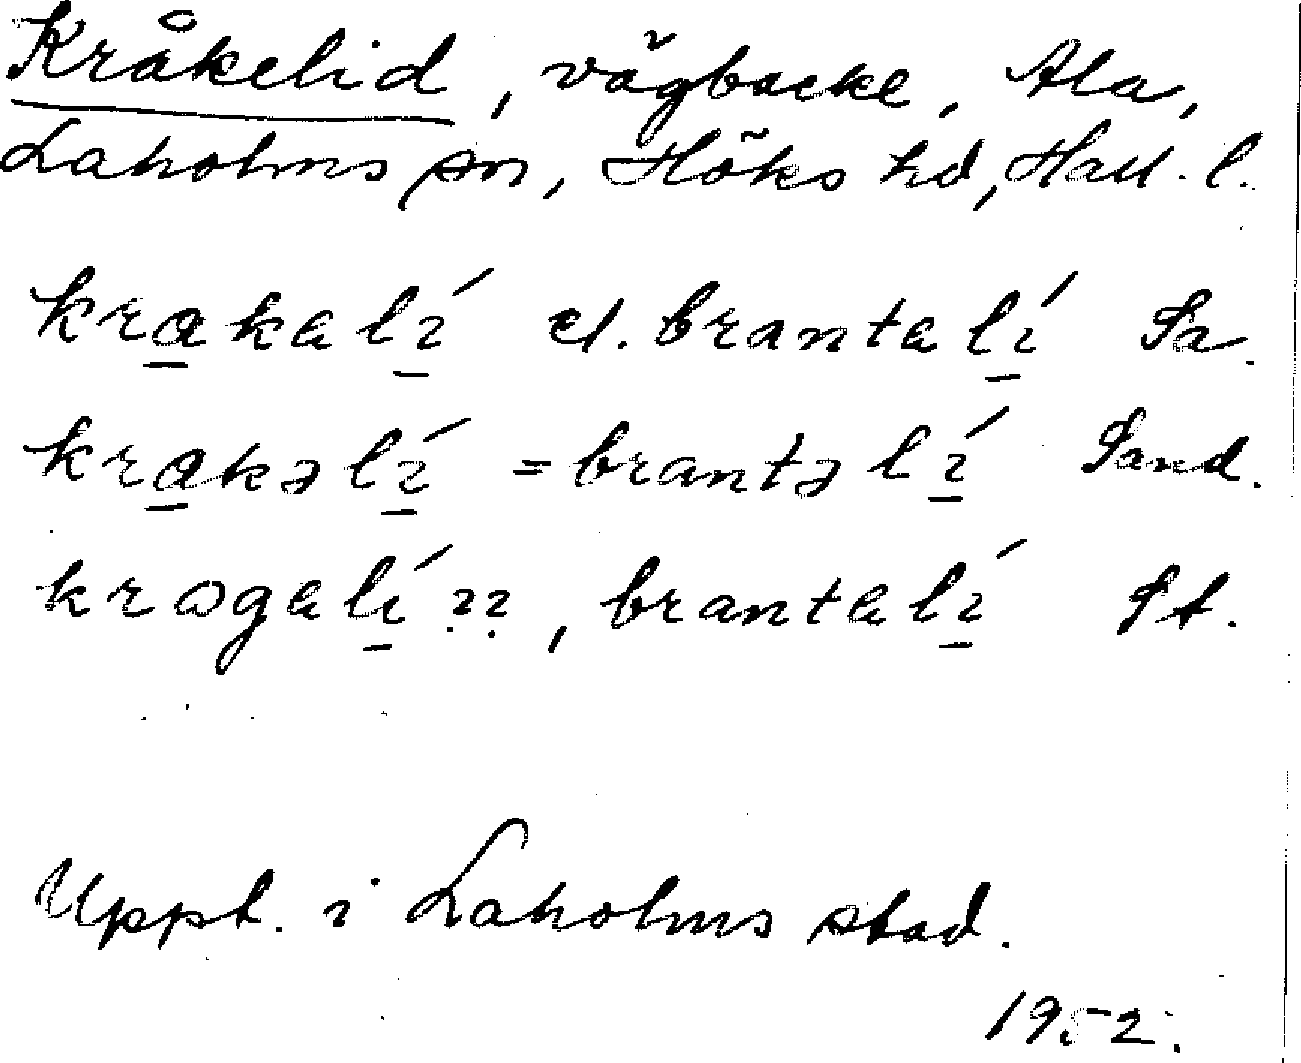 Kråkelid, vägbacke, Ala,
Laholms sn, Höks hd, Hall. l.
kra̲kalí̲ el. brantalí̲ Sa.
kra̲kəlí̲ = brantəlí̲ Sand.
krogalí̲ ??, brantalí̲ St.
Uppt. i Laholms stad.
1952.